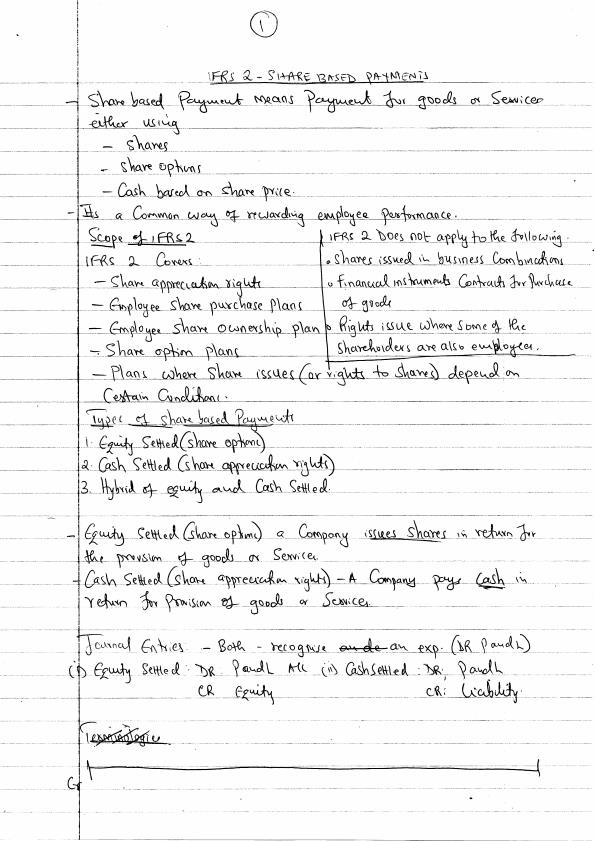 1
IFRS 2 - SHARE BASED PAYMENTS
- Share based Payment means Payment for goods or Services
either using
- Shares
- Share options
- Cash based on share price.
- Its a Common way of rewarding employee performance.
Scope of IFRS2
IFRS 2 Covers:
- Share appreciation rights
- Employee share purchase Plans
- Employee share ownership plan
- Share option plans
- Plans where Share issues (or rights to shares) depend on
Certain Conditions.
IFRS 2 Does not apply to the following.
• Shares issued in business Combinations
• Financial instruments Contracts for Purchase
of goods
• Rights issue where some of the
shareholders are also employees.
Types of share based Payments
1. Equity Settled (share options)
2. Cash Settled (share appreciation rights)
3. Hybrid of equity and Cash Settled.
- Equity Settled (share options) a Company issues shares in return for
the provision of goods or Services
- Cash Settled (share appreciation rights) - A Company pays Cash in
return for Provision of goods or Services.
Journal Entries - Both - recognise an exp. (DR P and L)
(i) Equity Settled: DR P and L A/c (ii) Cash Settled: DR: P and L
CR Equity CR: Liability.
G